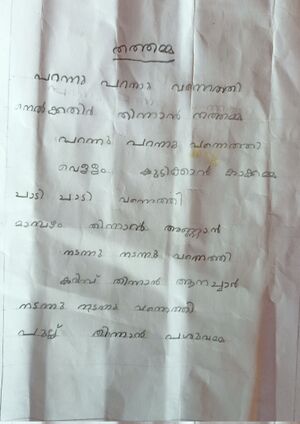 തത്തമ്മ
പറന്നു പറന്നു വന്നെത്തി
നെൽക്കതിർ തിന്നാൻ തത്തമ്മ
പറന്നു പറന്നു വന്നെത്തി
വെള്ളം കുടിക്കാൻ കാക്കമ്മ
ചാടി ചാടി വന്നെത്തി
മാമ്പഴം തിന്നാൻ അണ്ണാൻ
നടന്നു നടന്നു വന്നെത്തി
കരിമ്പ് തിന്നാൻ ആനച്ചാർ
നടന്നു നടന്നു വന്നെത്തി
പുല്ല് തിന്നാൻ പശുവമ്മ